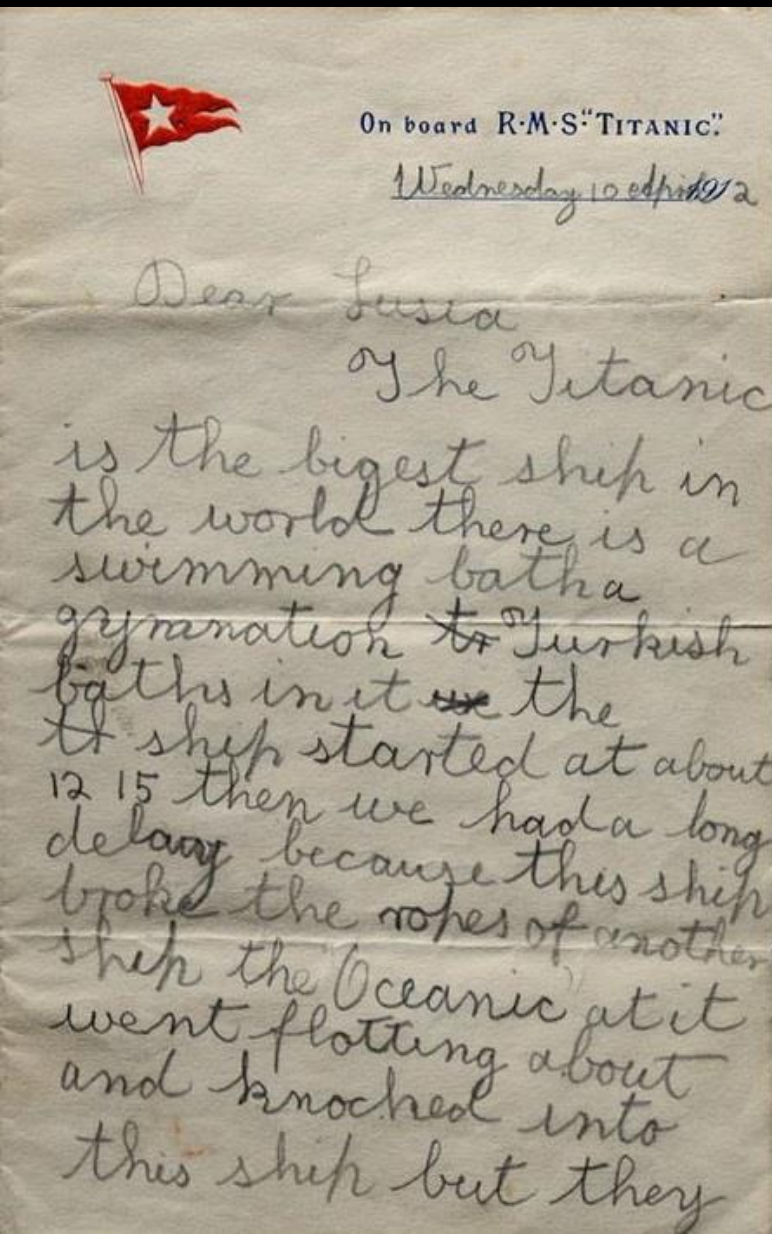 On board R·M·S·"TITANIC".
Wednesday 10 April 1912
Dear Lusia
The Titanic
is the bigest ship in
the world there is a
swimming bath a
gymnation tr Turkish
baths in it the
tt ship started at about
12 15 then we had a long
delay because this ship
broke the ropes of another
ship the Oceanic at it
went flotting about
and knocked into
this ship but they